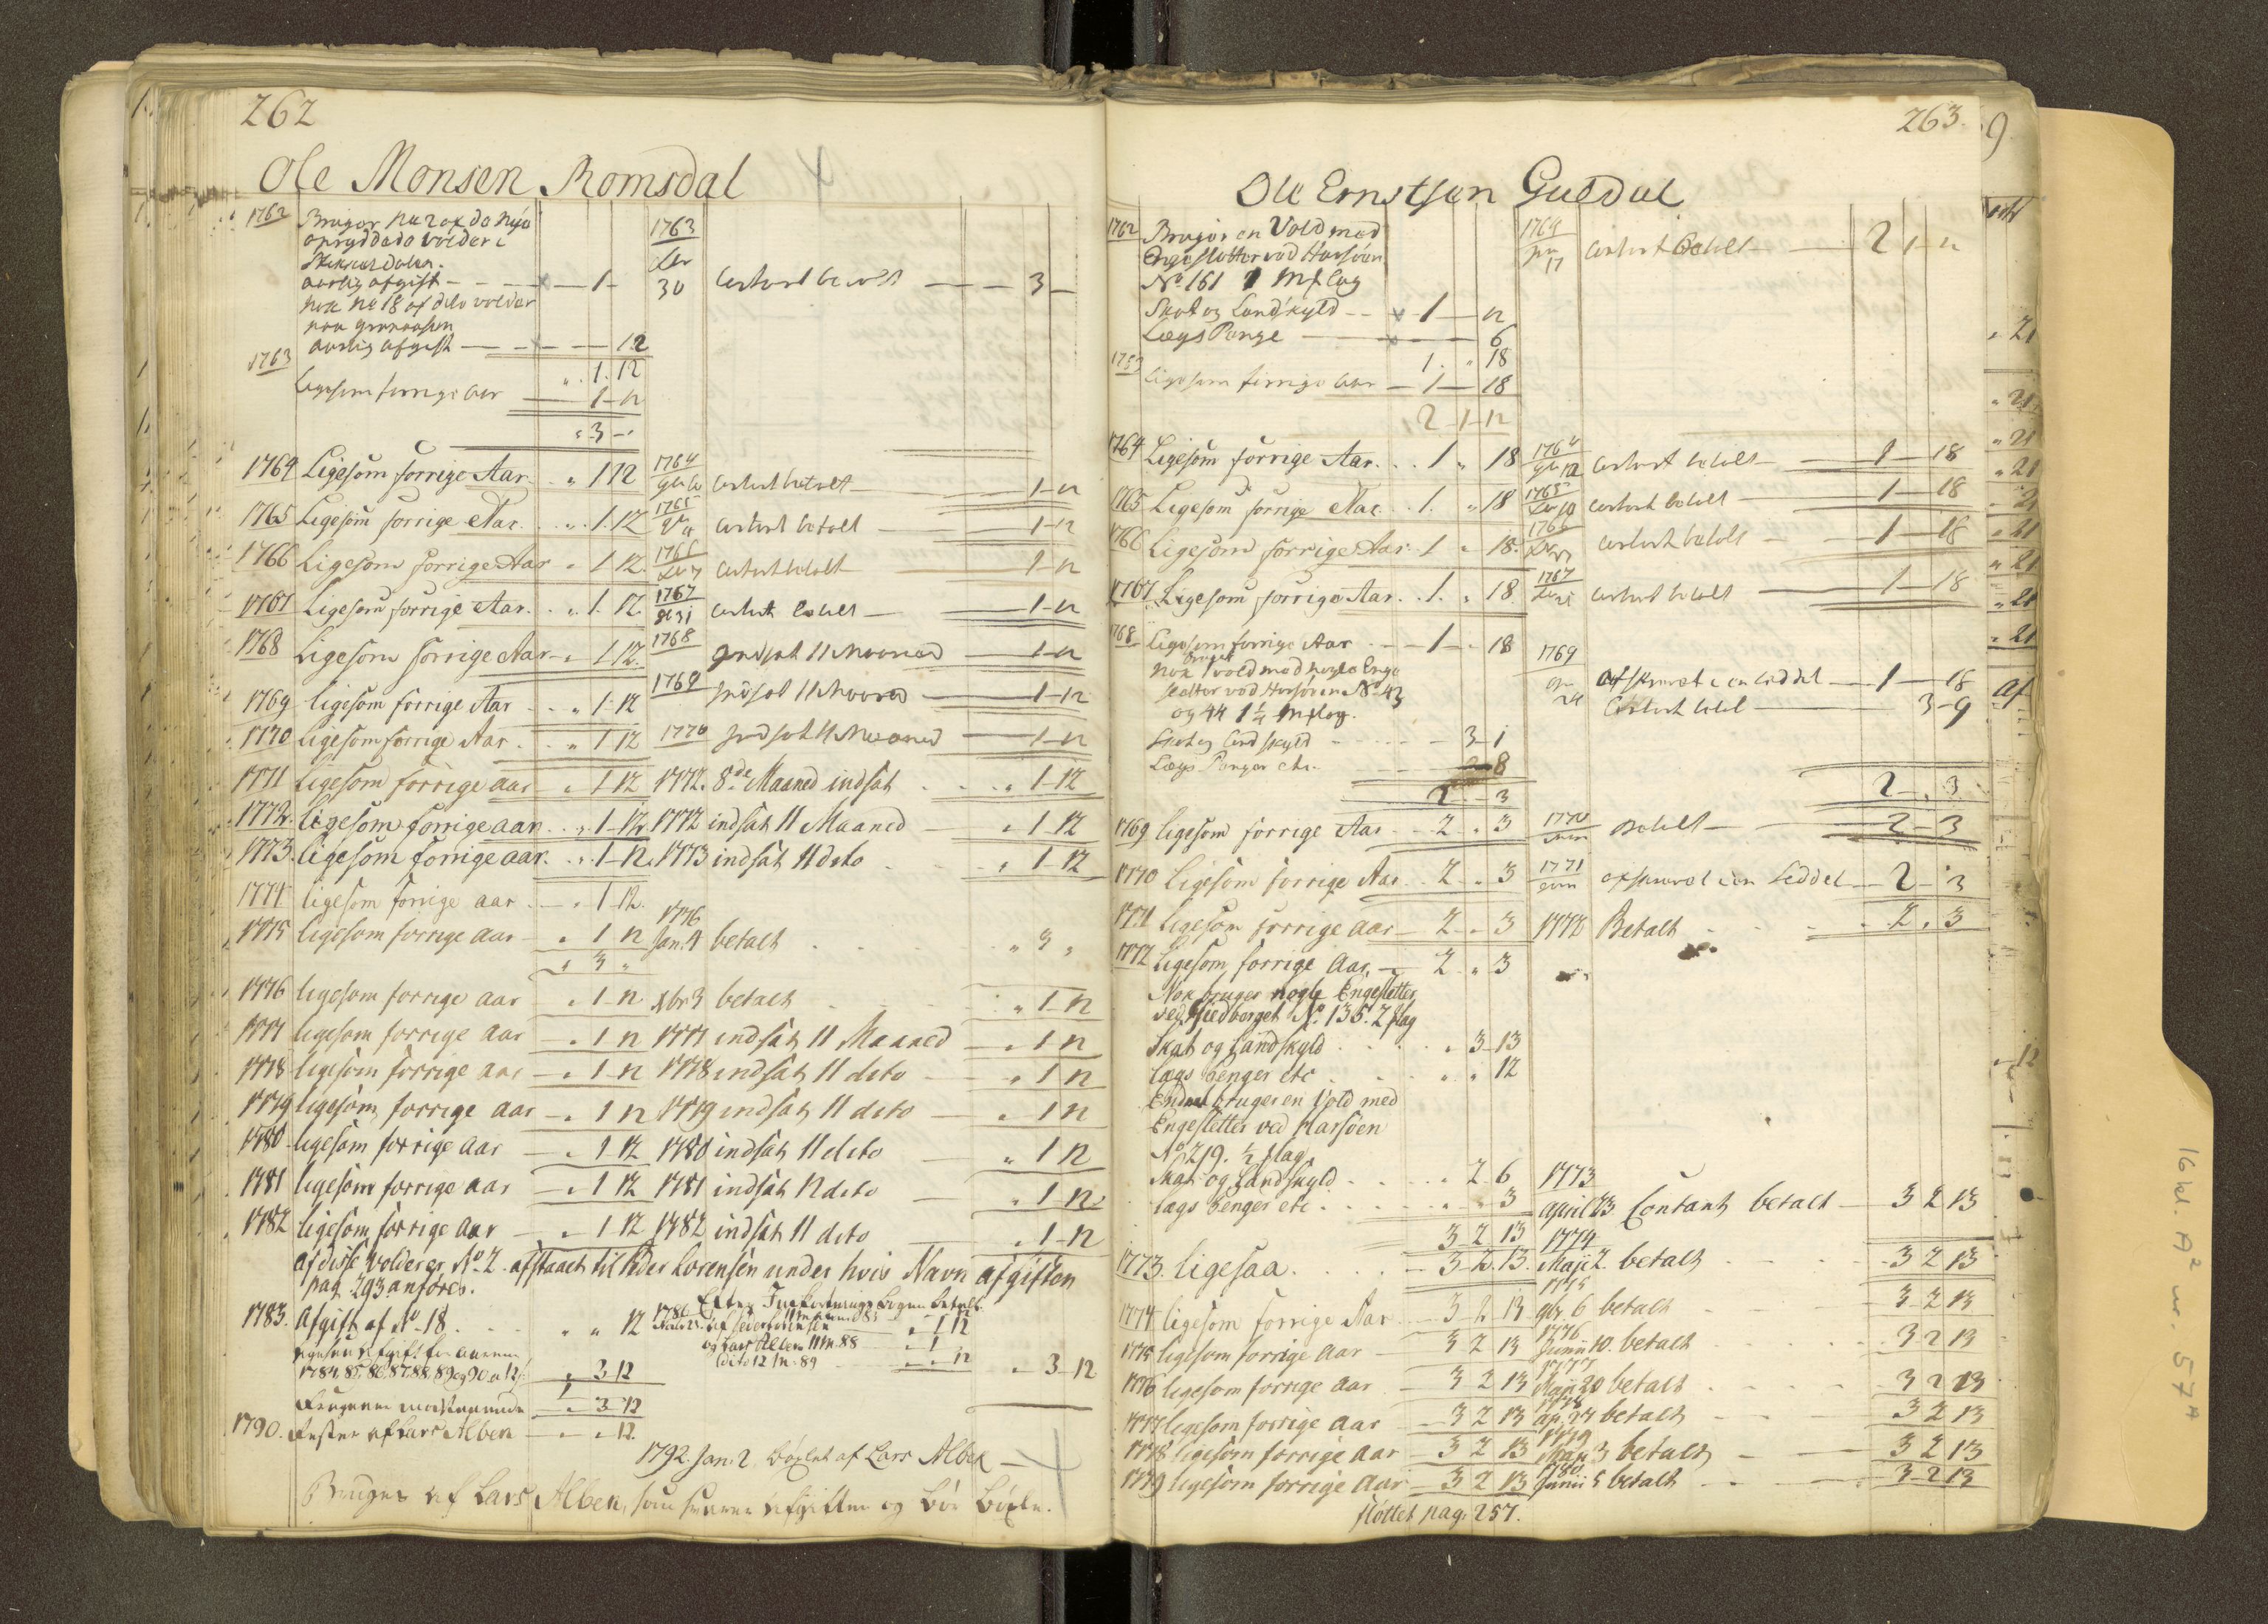 262
Ole Monsen Romsdal
1762 Bruger No 2 af de nÿe
opryddede volder i
aarlig afgift 1
nok No 18 af dito volder
aarlig afgift 12
1.12
1763 Ligesom forrige Aar 1-12
3
1763
30 contant betalt 3
1764 Ligesom forrige Aar 1 12 1764 contant betalt 1-12
1765 Ligesom forrige Aar 1.12 1765 contant betalt 1-12
1766 Ligesom forrige Aar 1 12 1766 contant betalt 1-12
1767 Ligesom forrige Aar 1.12 1767 contant betalt 1-12
1768 Ligesom forrige Aar 1 12 1768 Indsat 11 Maaned 1-12
1769 ligesom forrige Aar 1-12 1769 Indsat 11 Maaned 1-12
1770 ligesom forrige Aar 1 12 1770 Indsat 11 Maaned 1-12
1771 ligesom forrige aar 1 12 1772. 8de Maaned indsat 1-12
1772 ligesom forrige aar 1-12 1772 indsat 11 Maaned 1-12
1773. ligesom forrige aar. 1-12 1773 indsat 11 dito 1-12
1774 ligesom forrige aar 1-12
1775 ligesom forrige aar 1 12
3
1776
Jan. 4 betalt 3
1776 ligesom forrige aar 1-12 Xbr 3 betalt 1-12
1777 ligesom forrige aar 1 12 1777 indsat 11 Maaned 1 12
1778 ligesom forrige aar 1-12 1778 indsat 11 dito 1 12
1779 ligesom forrige aar 1 12 1779 indsat 11 dito 1 12
1780 ligesom forrige aar 1 12 1780 indsat 11 dito 1 12
1781 ligesom forrige aar 1 12 1781 indsat 12 dito 1-12
1782 ligesom forrige aar 1 12 1782 indsat 11 dito 1-12
af disse volder er No. 2. afstaaet til Peder Lorensen under hvis Navn afgiften
pag. 293 anføres.
1783. Afgift af No. 18 12
1784. 85. 86. 87. 88. 89 og 90 a 12 3 12
3-12
1786 1 12
og Lars Alben 11 M. 88 1
dito 12 M. 89 12 3-12
1790. af Lars Alben 12
1792. Jan. 2. bøxlet af Lars Alben
Bruges af Lars Alben, som svarer afgiften og bør bøxle.
263.
Ole Ernstsen Guldal
1762 Bruger en Vold med
Enge sletter ved Harsøen
No. 161 1 Mslag
Skat og Landskyld 1 12
Lægs Penge 6
1. 18
1763 ligesom forrige Aar 1 18
2-1-12
1764
17 contant Betalt 2 1 12
1764 Ligesom forrige Aar. 1 18 1764 contant betalt 1-18
1765 Ligesom forrige Aar 1. 18 1765 contant betalt 1-18
1766 Ligesom forrige Aar. 1 18. 1766 contant betalt 1-18
1767 Ligesom forrige Aar. 1. 18 1767 contant betalt 1-18
1768 Ligesom forrige Aar 1 18
nok bruger 1 vold med nogle Enge
sletter ved Harsøen No. 43
og 44 1 1/4 Mslag.
Skat og Landskyld 3-1
Lægs Penger etc. 8
2 3
1769
24 afskrevet i en seddel 1-18
Contant betal 3-9
2 3
1769 ligesom forrige Aar 2 3 1770 Betalt 2-3
1770 ligesom forrige Aar 2 3 1771 afskrevet i en Seddel 2-3
1771 ligesom forrige aar 2 3 1772 Betalt 2. 3
1772 ligesom forrige Aar 2 3
Nok bruger nogle Engesletter
ved No. 136. 2 slag
Skat og Landskyld 3-13
lægs Penger etc 12
Endnu bruger en Vold med
Engesletter ved Harsøen
No 219. 1/2 slag.
Skat og Landskyld 2-6
lægs Penger etc 3
3 2 13
1773
april 23 Contant betalt 3 2 13
1773. ligesaa 3-2.13. 1774 Maji 2. betalt 3 2 13
1774 ligesom forrige Aar 3 2 13 1775 9br. 6 betalt 3 2 13
1775 ligesom forrige aar 3 2 13 1776 Junii 10. betalt 3 2 13
1776 ligesom forrige aar 3 2 13 1777 Maji 20 betalt 3 2 13
1777 ligesom forrige aar 3 2 13 1778 ap. 27 betalt 3 2 13
1778 ligesom forrige aar 3 2 13 1779 Maji 3 betalt 3 2 13
1779 ligesom forrige aar 3 2 13 1780 Junii 5 betalt 3 2 13
fløttet pag. 257.
16 kl. A2 nr. 57A